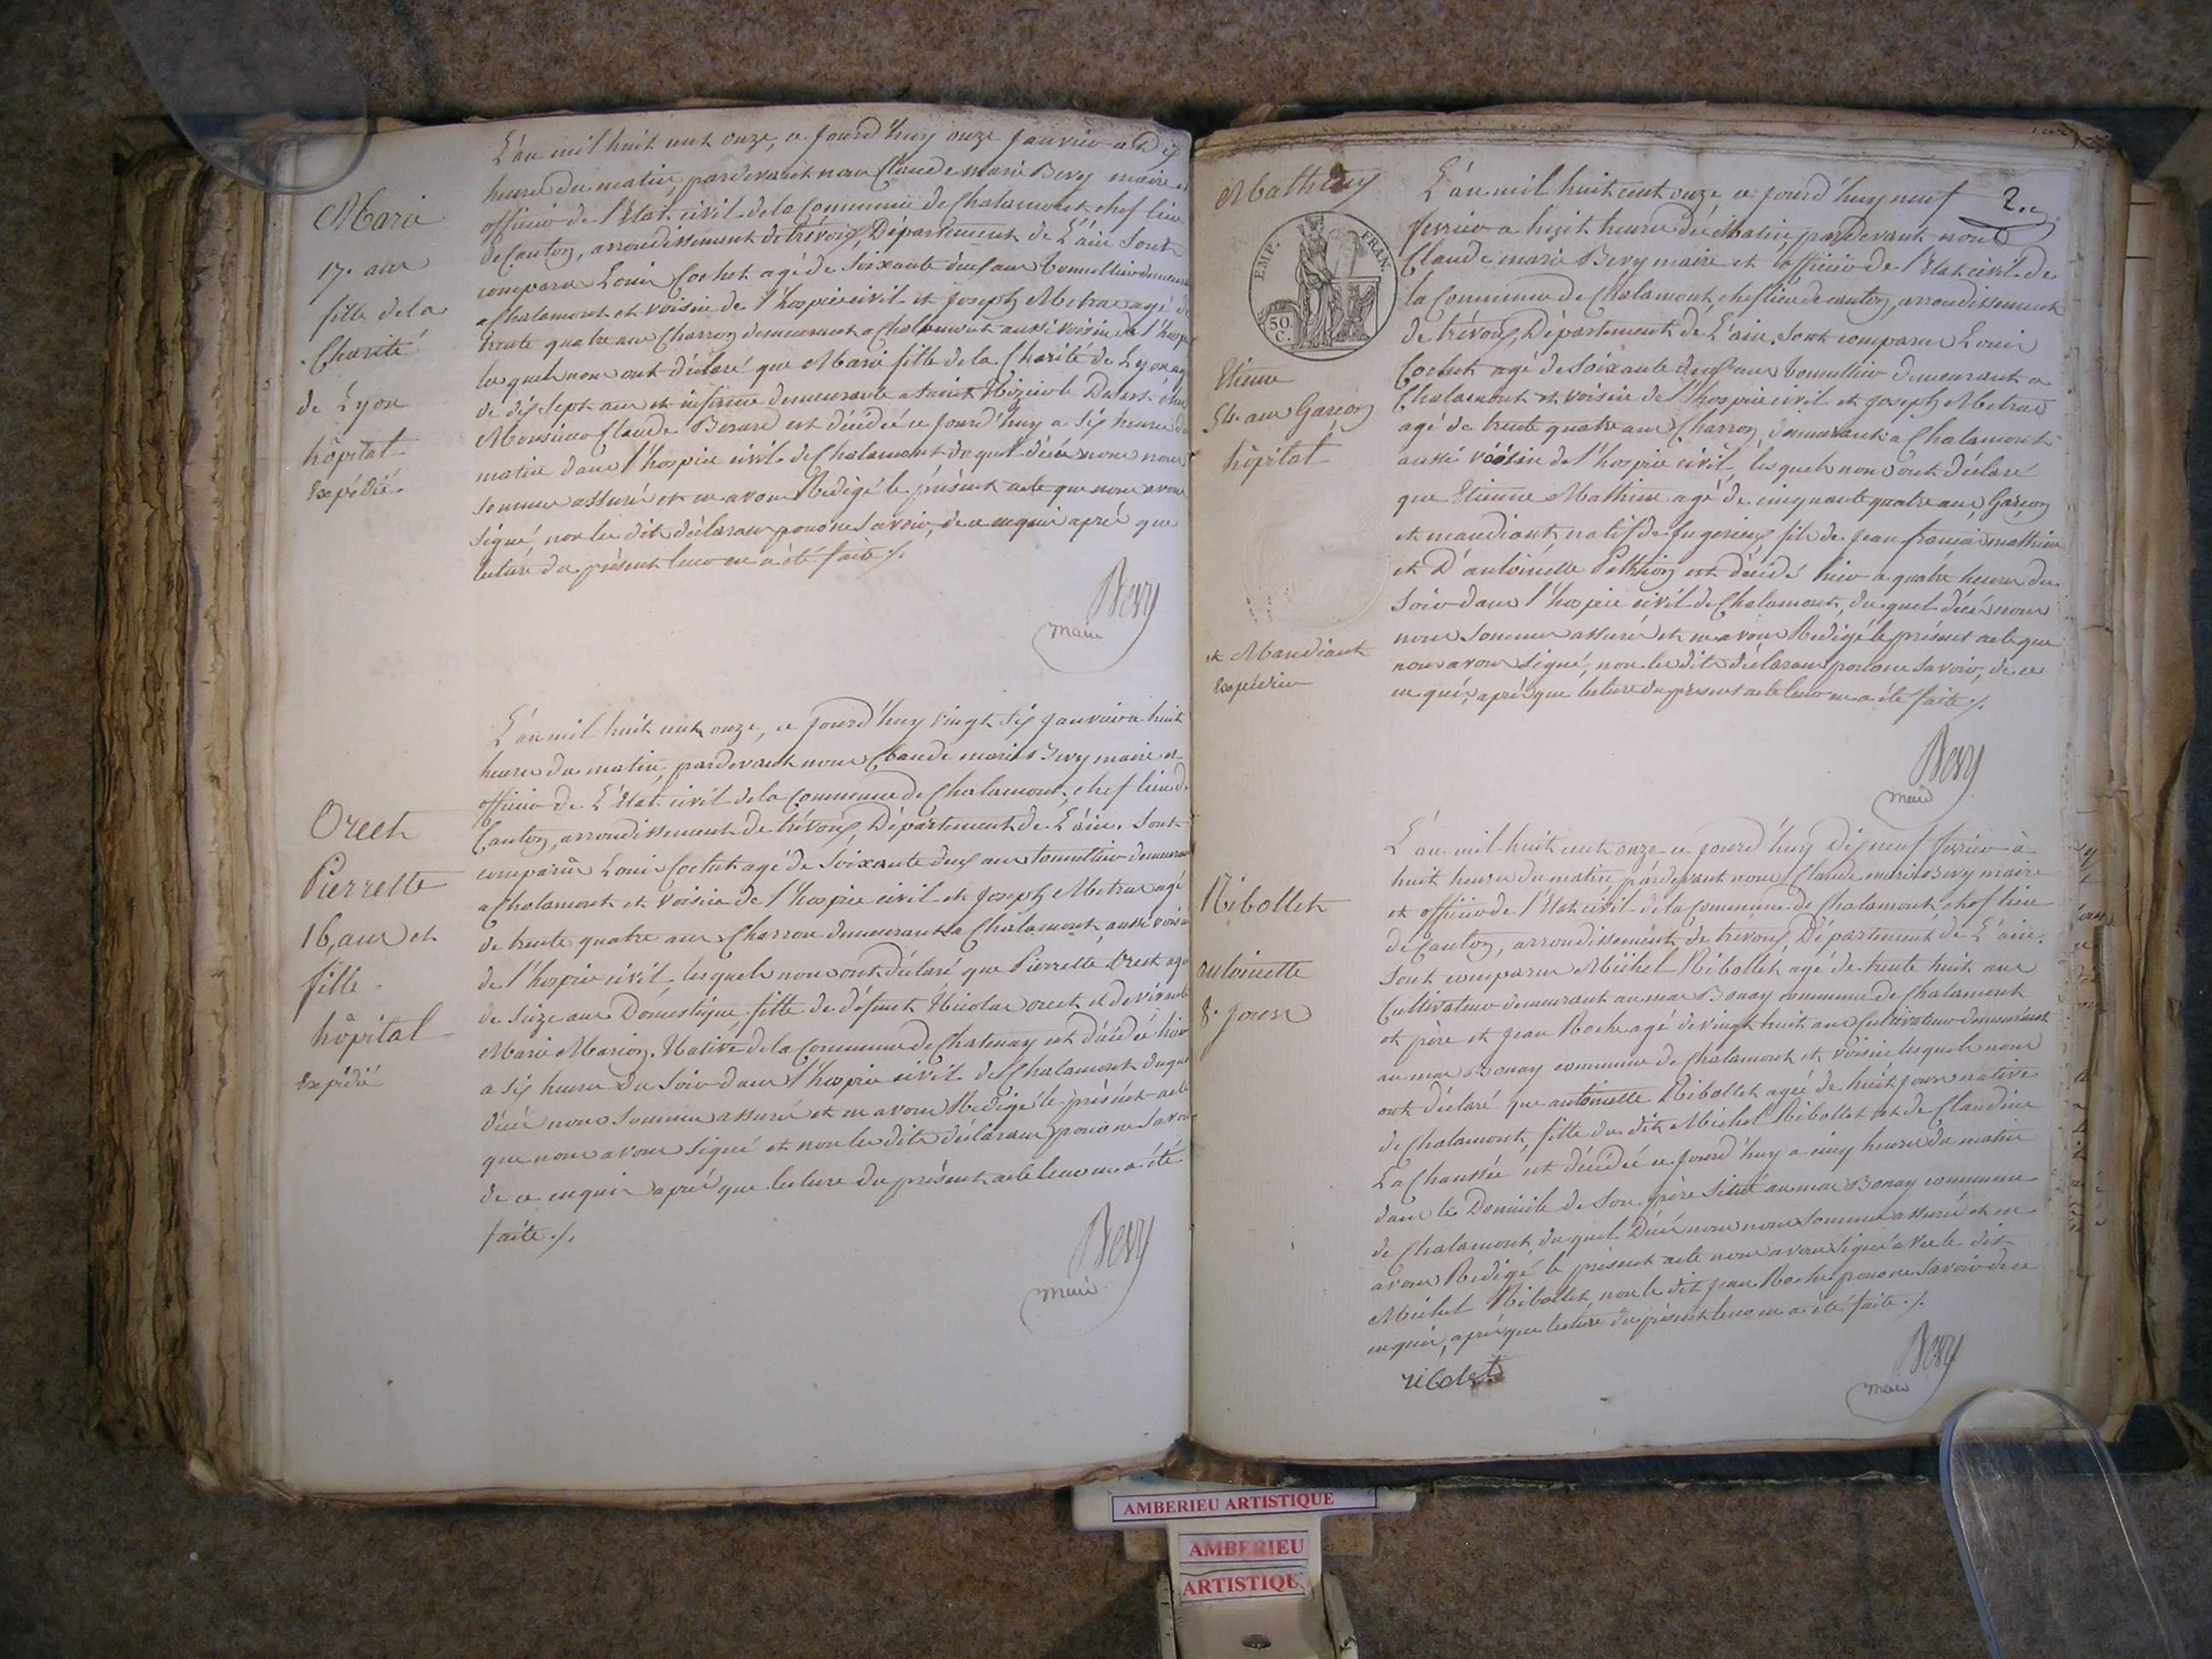 Marie
17. ans
fille de la
Charité
de Lyon
hôpital
Expédié.
L'an mil huit cent onze, ce jourd'huy onze janvier a dix
heures du matin pardevant nous Claude marie Bevy maire et
officier de l'Etat civil de la Commune de Chalamont chef lieu
de Canton, arrondissement de trévoux, Département de L'ain Sont
comparus Louis Cochet agé de soixante deux ans tonnellier demeurant
a Chalamont et voisin de l'hospice civil et joseph Metras agé de
trente quatre ans Charron demeurant a Chalamont aussi voisin de l'hospice
les quels nous ont déclaré que Marie fille de la Charité de Lyon agée
de dix sept ans et infirme demeurante a Saint Nizier le Désert chez
Monsieur Claude Berard est décédée ce jourd'huy a six heures du
matin dans l'hospice civil de Chalamont du quel décès nous nous
sommes assuré et en avons Redigé le présent acte que nous avons
signé non les dits déclarans pour ne savoir, de ce enquis après que
lecture du présent leur en a été faite ./.
Bevy
maire
Orcet
Pierrette
16, ans et
fille
hôpital
Expédié
L'an mil huit cent onze, ce jourd'huy vingt six janvier a huit
heures du matin, pardevant nous Claude marie Bevy maire et
officier de L'Etat civil de la Commune de Chalamont, chef lieu de
Canton, arrondissement de trévoux, Département de L'ain. Sont
comparus Louis Cochet agé de soixante deux ans tonnellier demeurant
a Chalamont et voisin de l'hospice civil et Joseph Metras agé
de trente quatre ans Charron demeurant a Chalamont aussi voisin
de l'hospice civil, lesquels nous ont déclaré que Pierrette Orcet agée
de seize ans Domestique fille de défunt Nicolas orcet et de vivante
Marie Marion, Native de la Commune de Chatenay est décédée hier
a six heures du soir dans l'hospice civil de Chalamont duquel
décès nous sommes assuré et en avons Redigé le présent acte
que nous avons signé et non les dits déclarans pour ne savoir
de ce enquis après que lecture du présent acte leur en a été
faite ./.
Bevy
maire
2.e
Mathieu
EMP. FRAN.
50 C.
Etienne
54. ans Garçon
hôpital
et Mandiant
Expédié
L'an mil huit cent onze ce jourd'huy neuf
fevrier a huit heures du matin, pardevant nous
Claude marie Bevy maire et officier de l'Etat civil de
la Commune de Chalamont chef lieu de canton, arrondissement
de trévoux, Département de L'ain. Sont comparus Louis
Cochet agé de soixante deux ans tonnellier demeurant a
Chalamont et voisin de l'hospice civil et joseph Metras
agé de trente quatre ans Charron, demeurant a Chalamont
aussi voisin de l'hospice civil, lesquels nous ont déclaré
que Etienne Mathieu agé de cinquante quatre ans, Garçon
et mandiant natif de fils de jean françois mathieu
et D'antoinette est décédé hier a quatre heures du
soir dans l'hospice civil de Chalamont, du quel décès nous
nous sommes assuré et en avons Redigé le présent acte que
nous avons signé, non les dits déclarans pour ne savoir, de ce
enquis, après que lecture du présent acte leur en a été faite ./.
Bevy
maire
Ribollet
antoinette
8. jours
L'an mil huit cent onze ce jourd'huy Dix neuf fevrier à
huit heures du matin, pardevant nous Claude marie Bevy maire
et officier de l'Etat civil de la Commune de Chalamont chef lieu
de Canton, arrondissement de trevoux, Département de L'ain.
Sont comparus Michel Ribollet agé de trente huit ans
Cultivateur demeurant au mas Bonay commune de Chalamont
et père et Jean Roche agé de vingt huit ans Cultivateur demeurant
au mas Bonay commune de Chalamont et voisin lesquels nous
ont déclaré que antoinette Ribollet agée de huit jours native
de Chalamont, fille du dit Michel Ribollet et de Claudine
La Chaussée est décédée ce jourd'huy a cinq heures du matin
dans le Domicile de son père situé au mas Bonay commune
de Chalamont du quel Décès nous nous sommes assuré et en
avons Redigé le présent acte nous avons signé avec le dit
Michel Ribollet, non le dit Jean Roche pour ne savoir de ce
enquis, après que lecture du présent leur en a été faite ./.
ribolet
Bevy
maire
AMBERIEU ARTISTIQUE
AMBERIEU
ARTISTIQUE